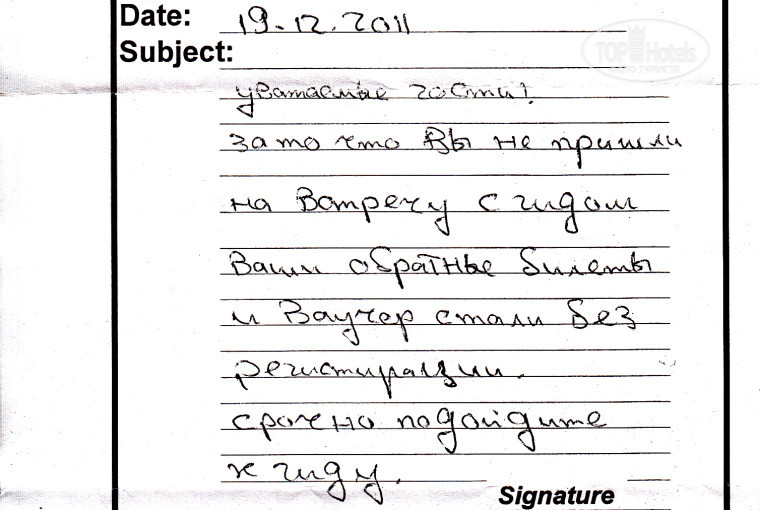 Date: 19.12.2011
Subject:
TOP Hotels
уватаемые гости!
за то что Вы не пришли
на Встречу с гидом
Ваши обратные билеты
и Ваучер стали без
регистирации.
срочно подойдите
к гиду.
Signature